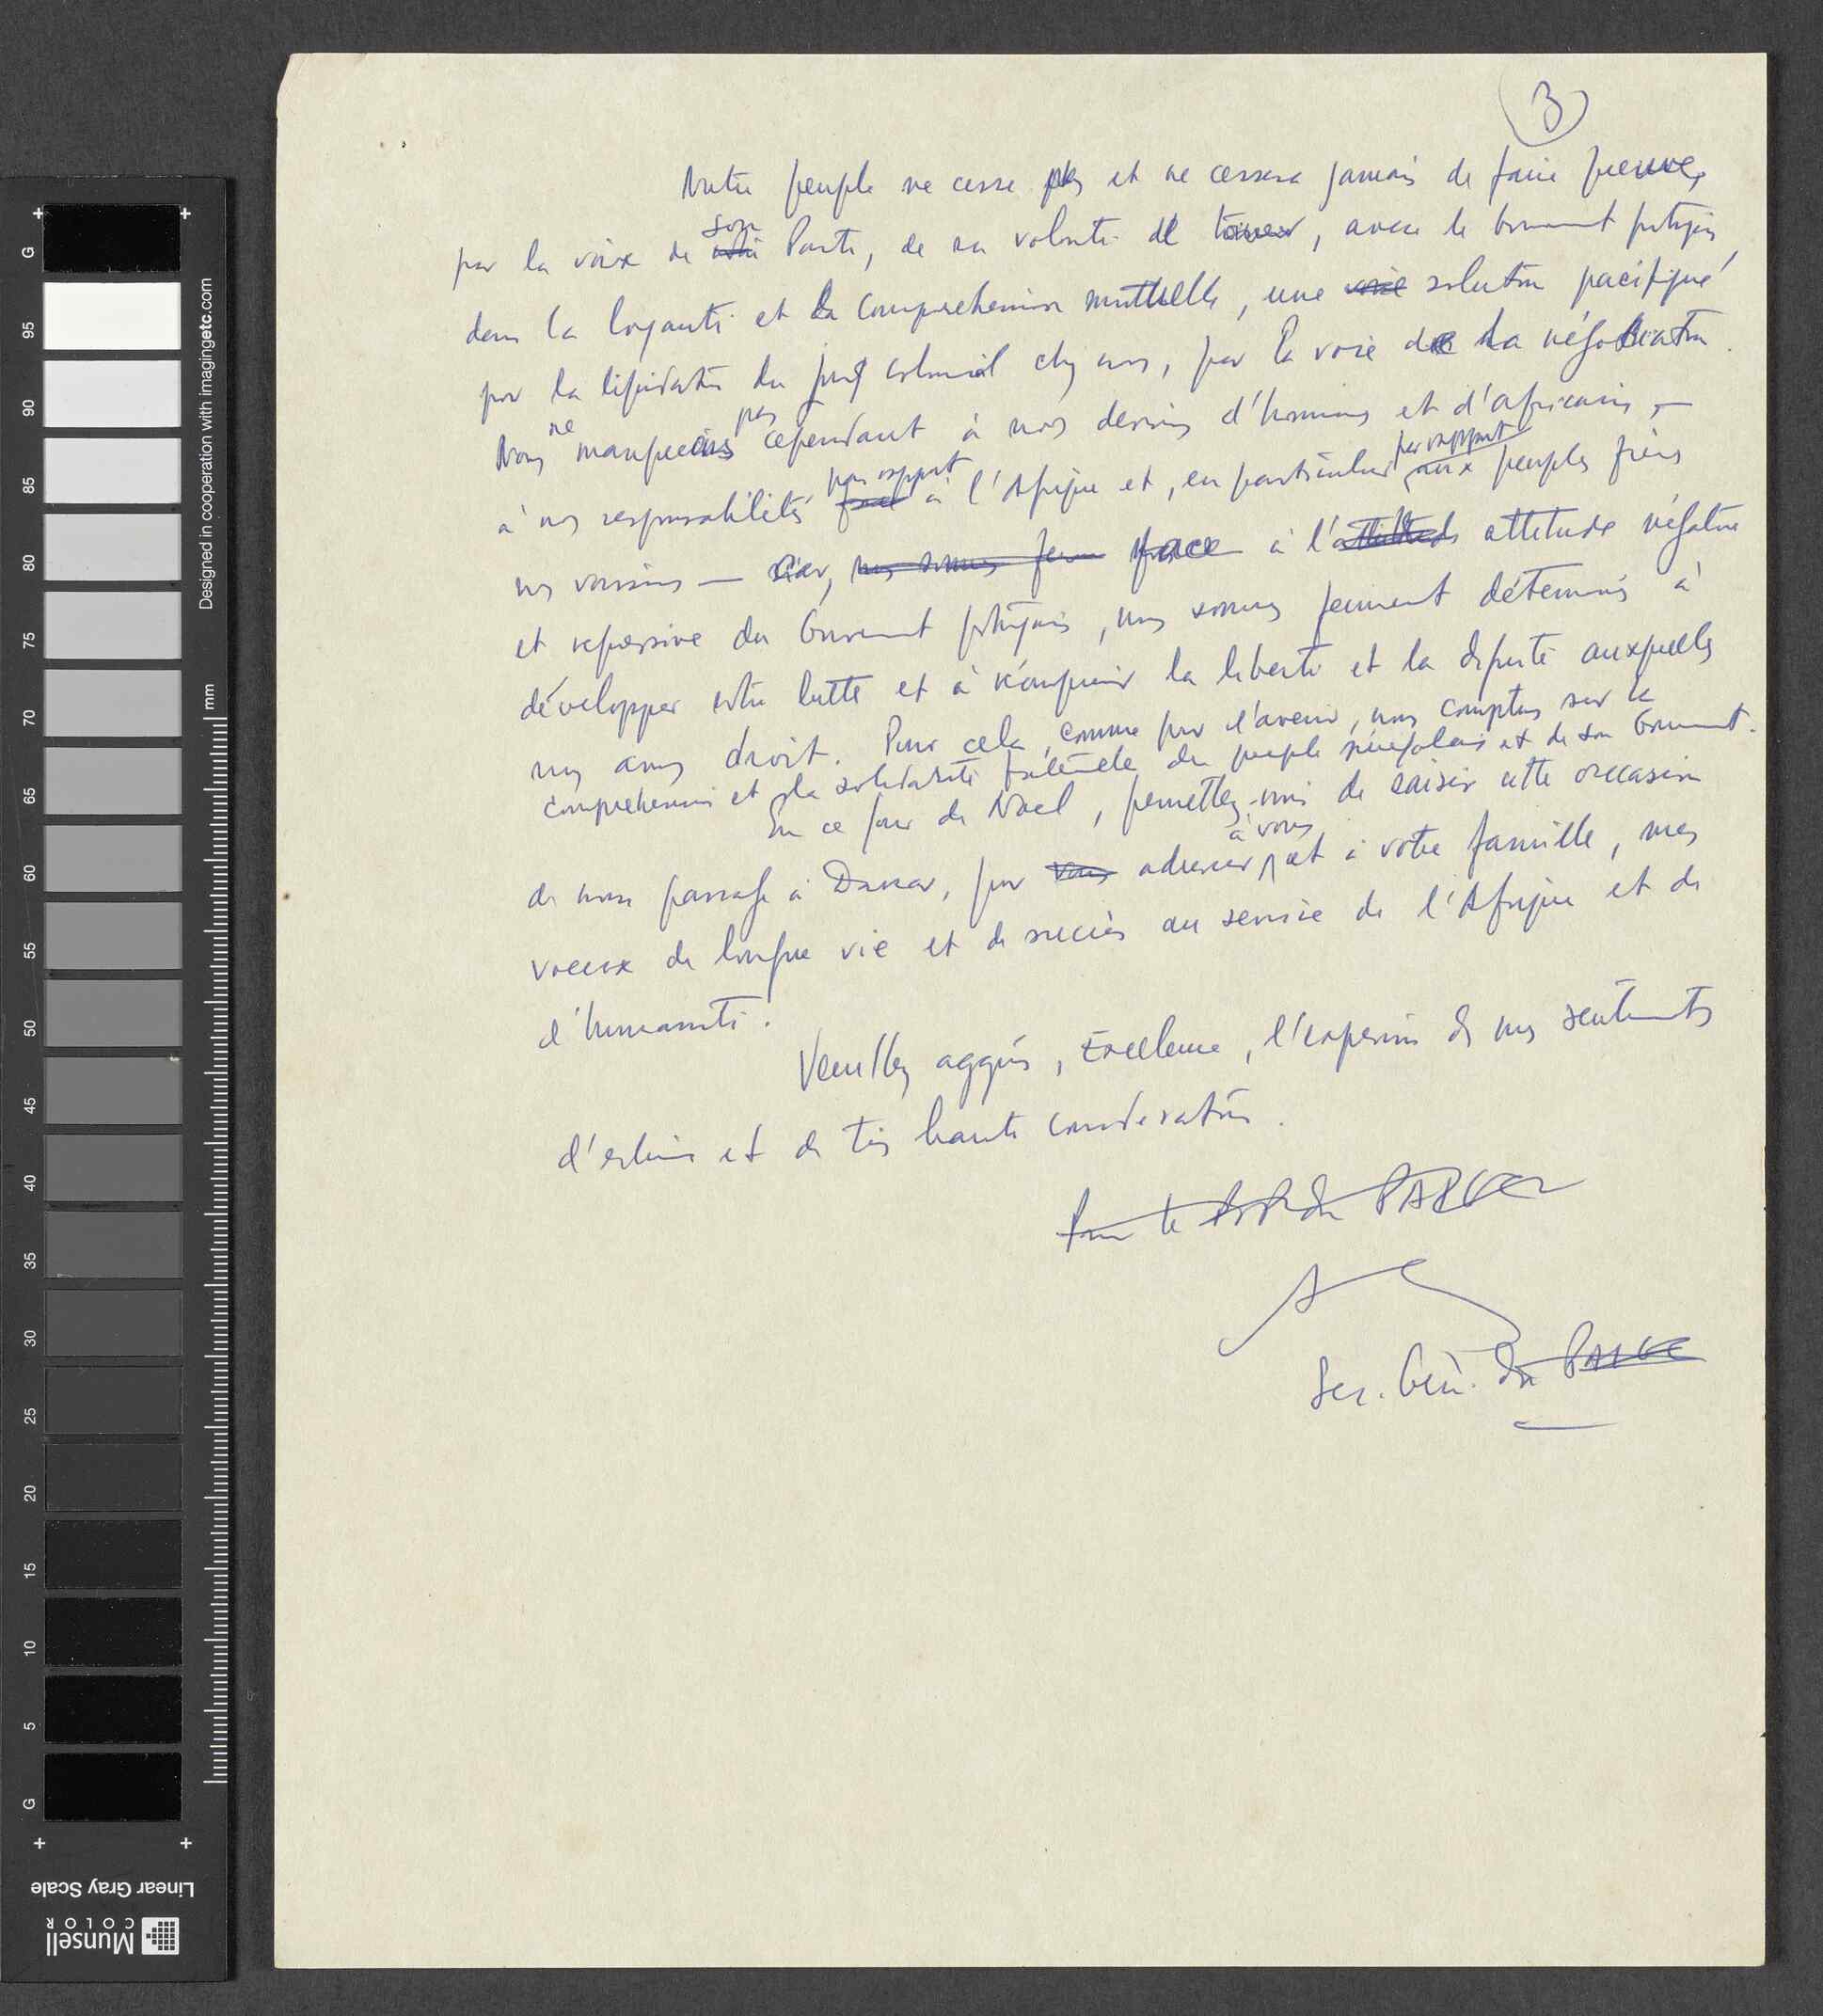 3
Notre peuple ne cesse pas et ne cessera jamais de faire preuve,
par la voix de son Parti, de sa volonté de trouver, avec le Gouvernement portugais,
dans la loyauté et la compréhension mutuelle, une solution pacifique
pour la liquidation du joug colonial chez nous, par la voie de la négociation.
Nous ne manquerons pas cependant à nos devoirs d'hommes et d'africains, —
à nos responsabilités par rapport à l'Afrique et, en particulier, par rapport aux peuples frères
nos voisins — car, face à l'attitude négative
et répressive du Gouvernement portugais, nous sommes fermement déterminés à
développer notre lutte et à conquérir la liberté et la dignité auxquelles
nous avons droit. Pour cela, comme pour l'avenir, nous comptons sur la
compréhension et la solidarité fraternelle du peuple sénégalais et de son Gouvernement.
En ce jour de Noel, permettez-moi de saisir cette occasion
de mon passage à Dakar, pour vous adresser, à vous et à votre famille, mes
voeux de longue vie et de succès au service de l'Afrique et de
l'humanité.
Veuillez aggréer, Excellence, l'expression de mes sentiments
d'estime et de très haute considération.
Pour le BP du PAIGC
Sec. Gén. du PAIGC
G
95
90
85
80
75
70
65
60
55
50
45
40
35
30
25
20
15
10
5
G
mm
Designed in cooperation with imagingetc.com
Linear Gray Scale
Munsell
COLOR